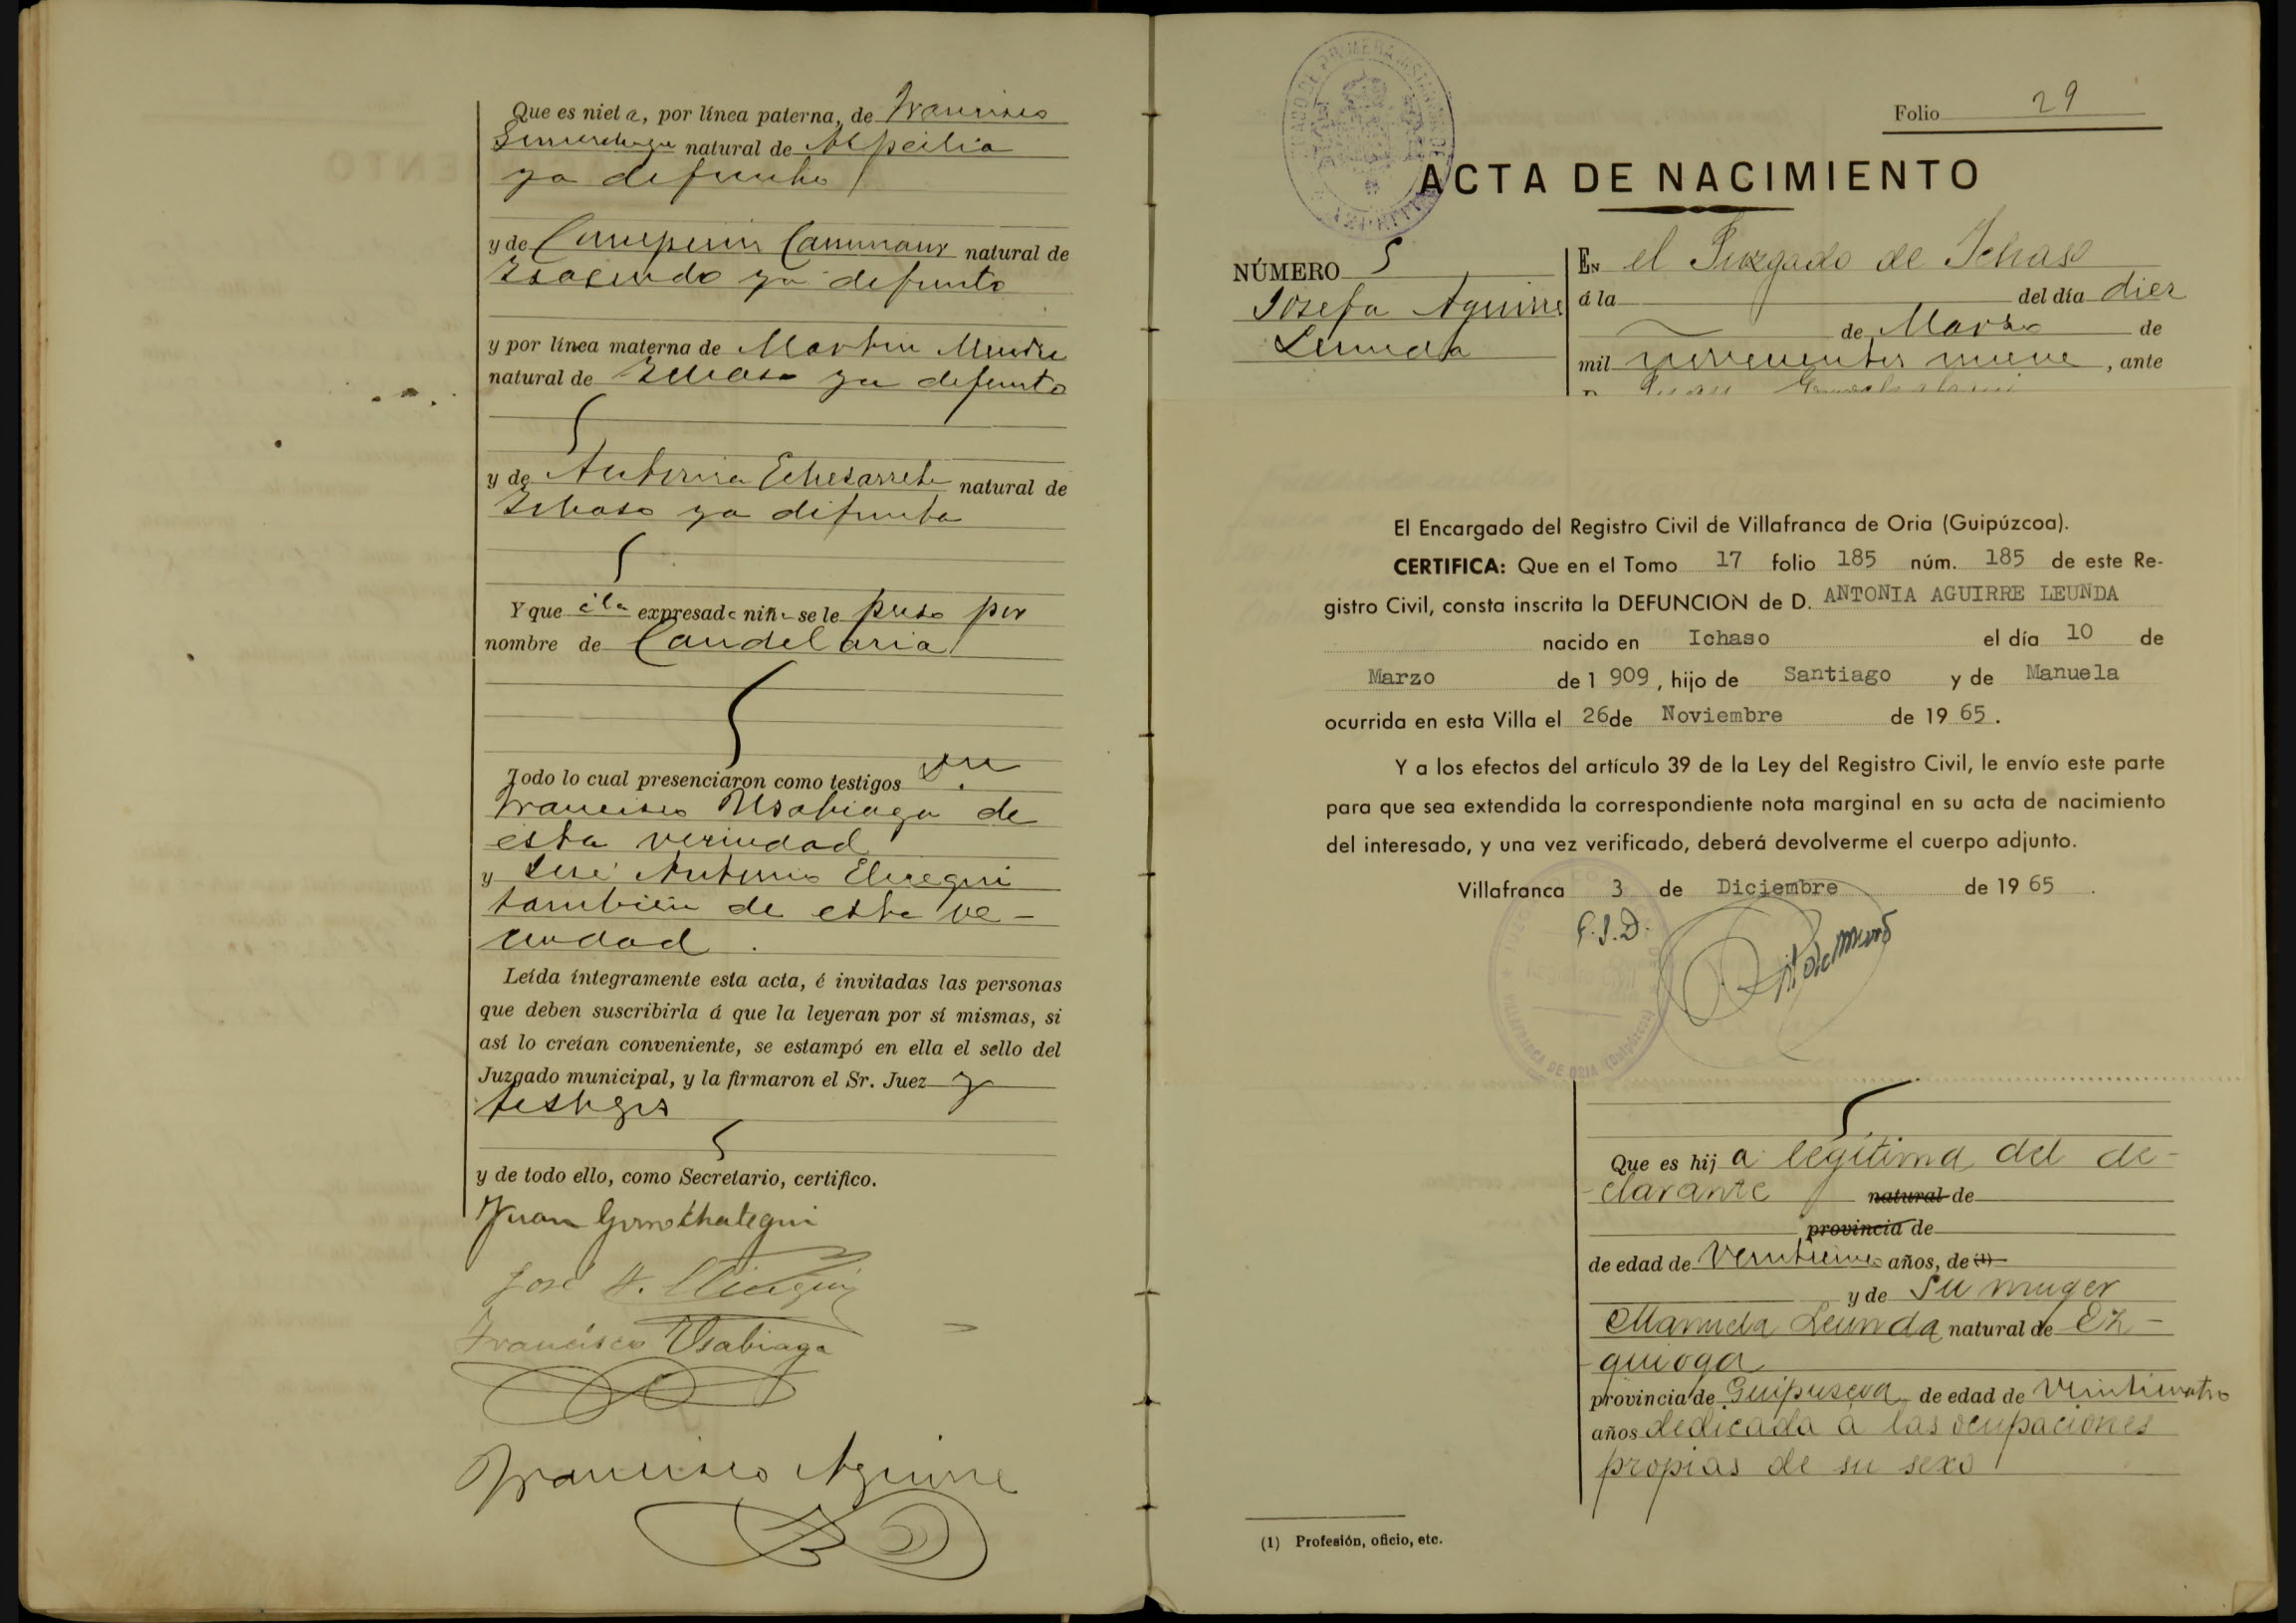 Que es niet a, por línea paterna, de Francisco
natural de Azpeitia
ya difunto
y de natural de
ya difunto
y por línea materna de Martin
natural de Ichaso ya difunto
y de Antonia Echezarreta natural de
Ichaso ya difunta
Y que á la expresada niña se le puso por
nombre de Candelaria
Todo lo cual presenciaron como testigos Dn
Francisco Usabiaga de
esta vecindad
y José Antonio Elicegui
también de esta ve-
cindad.
Leída íntegramente esta acta, é invitadas las personas
que deben suscribirla á que la leyeran por sí mismas, si
así lo creían conveniente, se estampó en ella el sello del
Juzgado municipal, y la firmaron el Sr. Juez y
testigos
y de todo ello, como Secretario, certifico.
Juan Gorrochategui
José A. Elicegui
Francisco Usabiaga
Francisco Aguirre
Folio 29
ACTA DE NACIMIENTO
NÚMERO 5
Josefa Aguirre
Leunda
EN el Juzgado de Ichaso
á la del día diez
de Marzo de
mil novecientos nueve, ante
El Encargado del Registro Civil de Villafranca de Oria (Guipúzcoa).
CERTIFICA: Que en el Tomo 17 folio 185 núm. 185 de este Re-
gistro Civil, consta inscrita la DEFUNCION de D. ANTONIA AGUIRRE LEUNDA
nacido en Ichaso el día 10 de
Marzo de 1 909, hijo de Santiago y de Manuela
ocurrida en esta Villa el 26 de Noviembre de 19 65.
Y a los efectos del artículo 39 de la Ley del Registro Civil, le envío este parte
para que sea extendida la correspondiente nota marginal en su acta de nacimiento
del interesado, y una vez verificado, deberá devolverme el cuerpo adjunto.
Villafranca 3 de Diciembre de 19 65.
VILLAFRANCA DE ORIA (Guipúzcoa)
Que es hij a legítima del de-
clarante natural de
provincia de
de edad de años, de (1)
y de su muger
Manuela Leunda natural de Ez-
quioga
provincia de Guipuscoa de edad de veinticuatro
años dedicada á las ocupaciones
propias de su sexo
(1) Profesión, oficio, etc.